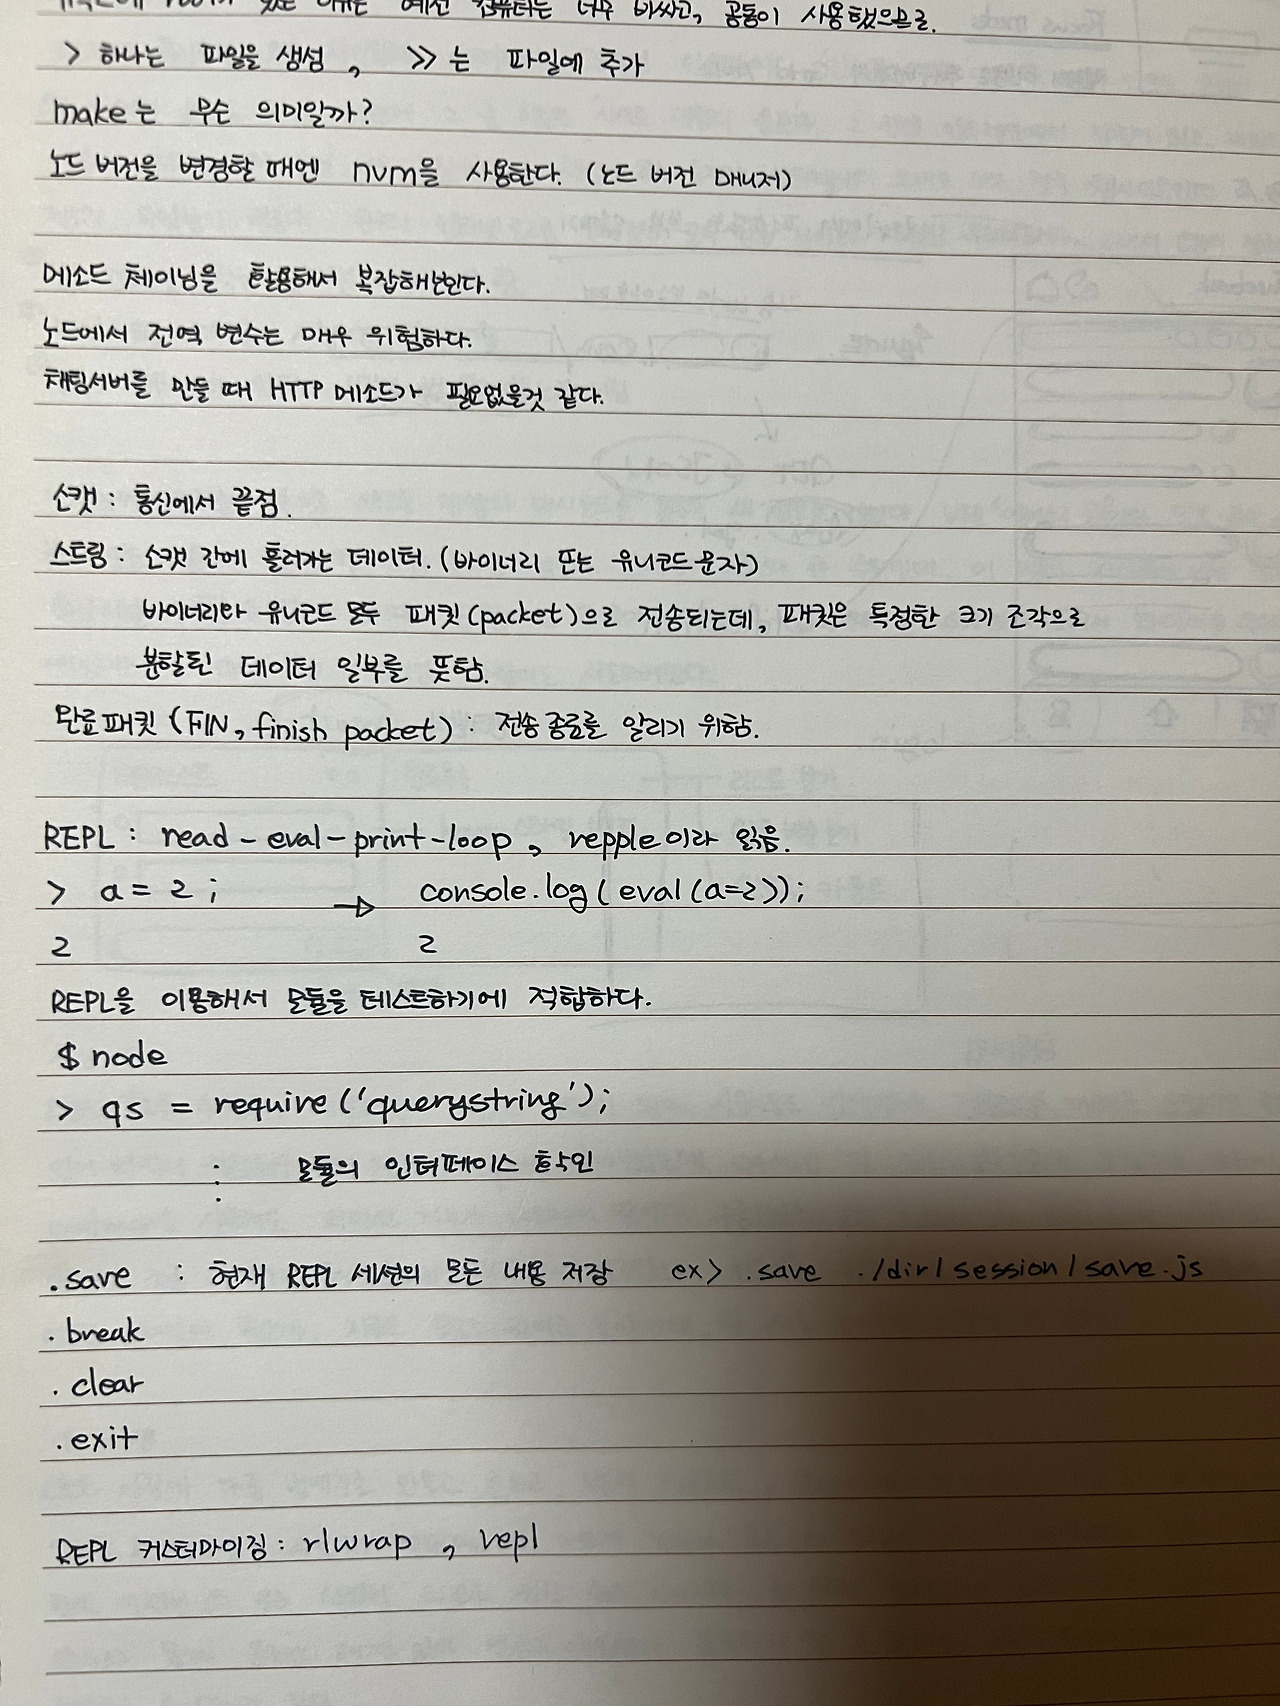 있는 이유는 예전 컴퓨터는 너무 비쌌고, 공동이 사용했었으므로.
> 하나는 파일을 생성, >> 는 파일에 추가
make는 무슨 의미일까?
노드 버전을 변경할 때엔 nvm을 사용한다. (노드 버전 매니저)
메소드 체이닝을 활용해서 복잡해보인다.
노드에서 전역 변수는 매우 위험하다.
채팅서버를 만들 때 HTTP 메소드가 필요없을것 같다.
소캣 : 통신에서 끝점.
스트림 : 소캣 간에 흘러가는 데이터. (바이너리 또는 유니코드 문자)
바이너리타 유니코드 모두 패킷(packet)으로 전송되는데, 패킷은 특정한 크기 조각으로
분할된 데이터 일부를 뜻함.
완료패킷 (FIN, finish packet) : 전송 종료를 알리기 위함.
REPL : read-eval-print-loop, repple이라 읽음.
> a = 2 ; → console.log(eval(a=2));
2 2
REPL을 이용해서 모듈을 테스트하기에 적합하다.
$ node
> qs = require('querystring');
⋮ 모듈의 인터페이스 확인
.save : 현재 REPL 세션의 모든 내용 저장 ex> .save ./dir/session/save.js
.break
.clear
.exit
REPL 커스터마이징 : rlwrap, repl